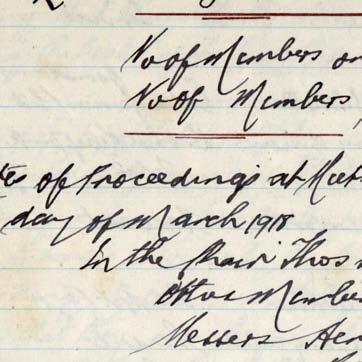 No of Members on
No of Members
tes of Proceedings at Meet
day of March 1918
In the Chair Thos
Other Membe
Messers Hen